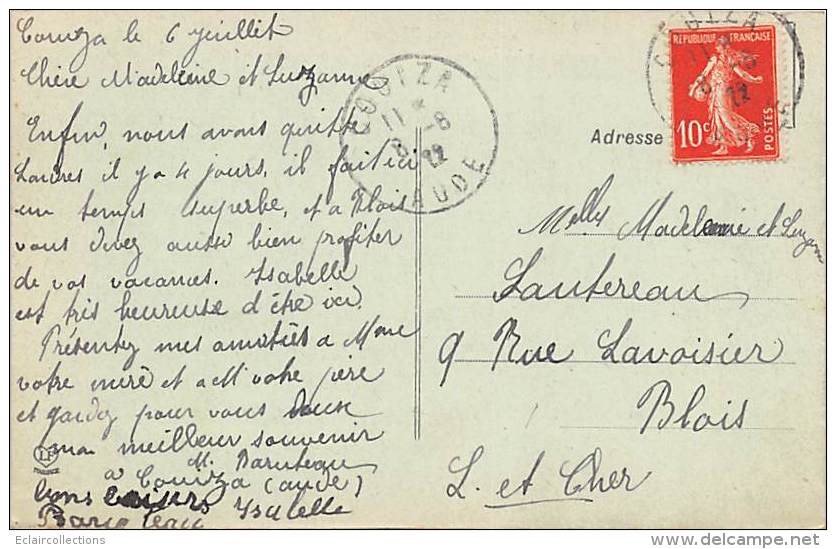 Couiza le 6 juillet
Chère Madeleine et Suzanne
Enfin, nous avons quitté
il y a 4 jours, il fait ici
un temps superbe, et a Blois
vous devez aussi bien profiter
de vos vacances. Isabelle
est très heureuse d'être ici.
Présentez mes amitiés a Mme
votre mère et a M votre père
et gardez pour vous deux
mon meilleur souvenir
M. Baruteau
a Couiza (aude)
bons baisers
Isabelle
COUIZA
11 *
8 -6
22
AUDE
RÉPUBLIQUE FRANÇAISE
10c
POSTES
Adresse
Melles Madeleine et Suzanne
Lautereau
9 Rue Lavoisier
Blois
L. et Cher
Eclaircollections
©delcampe.net